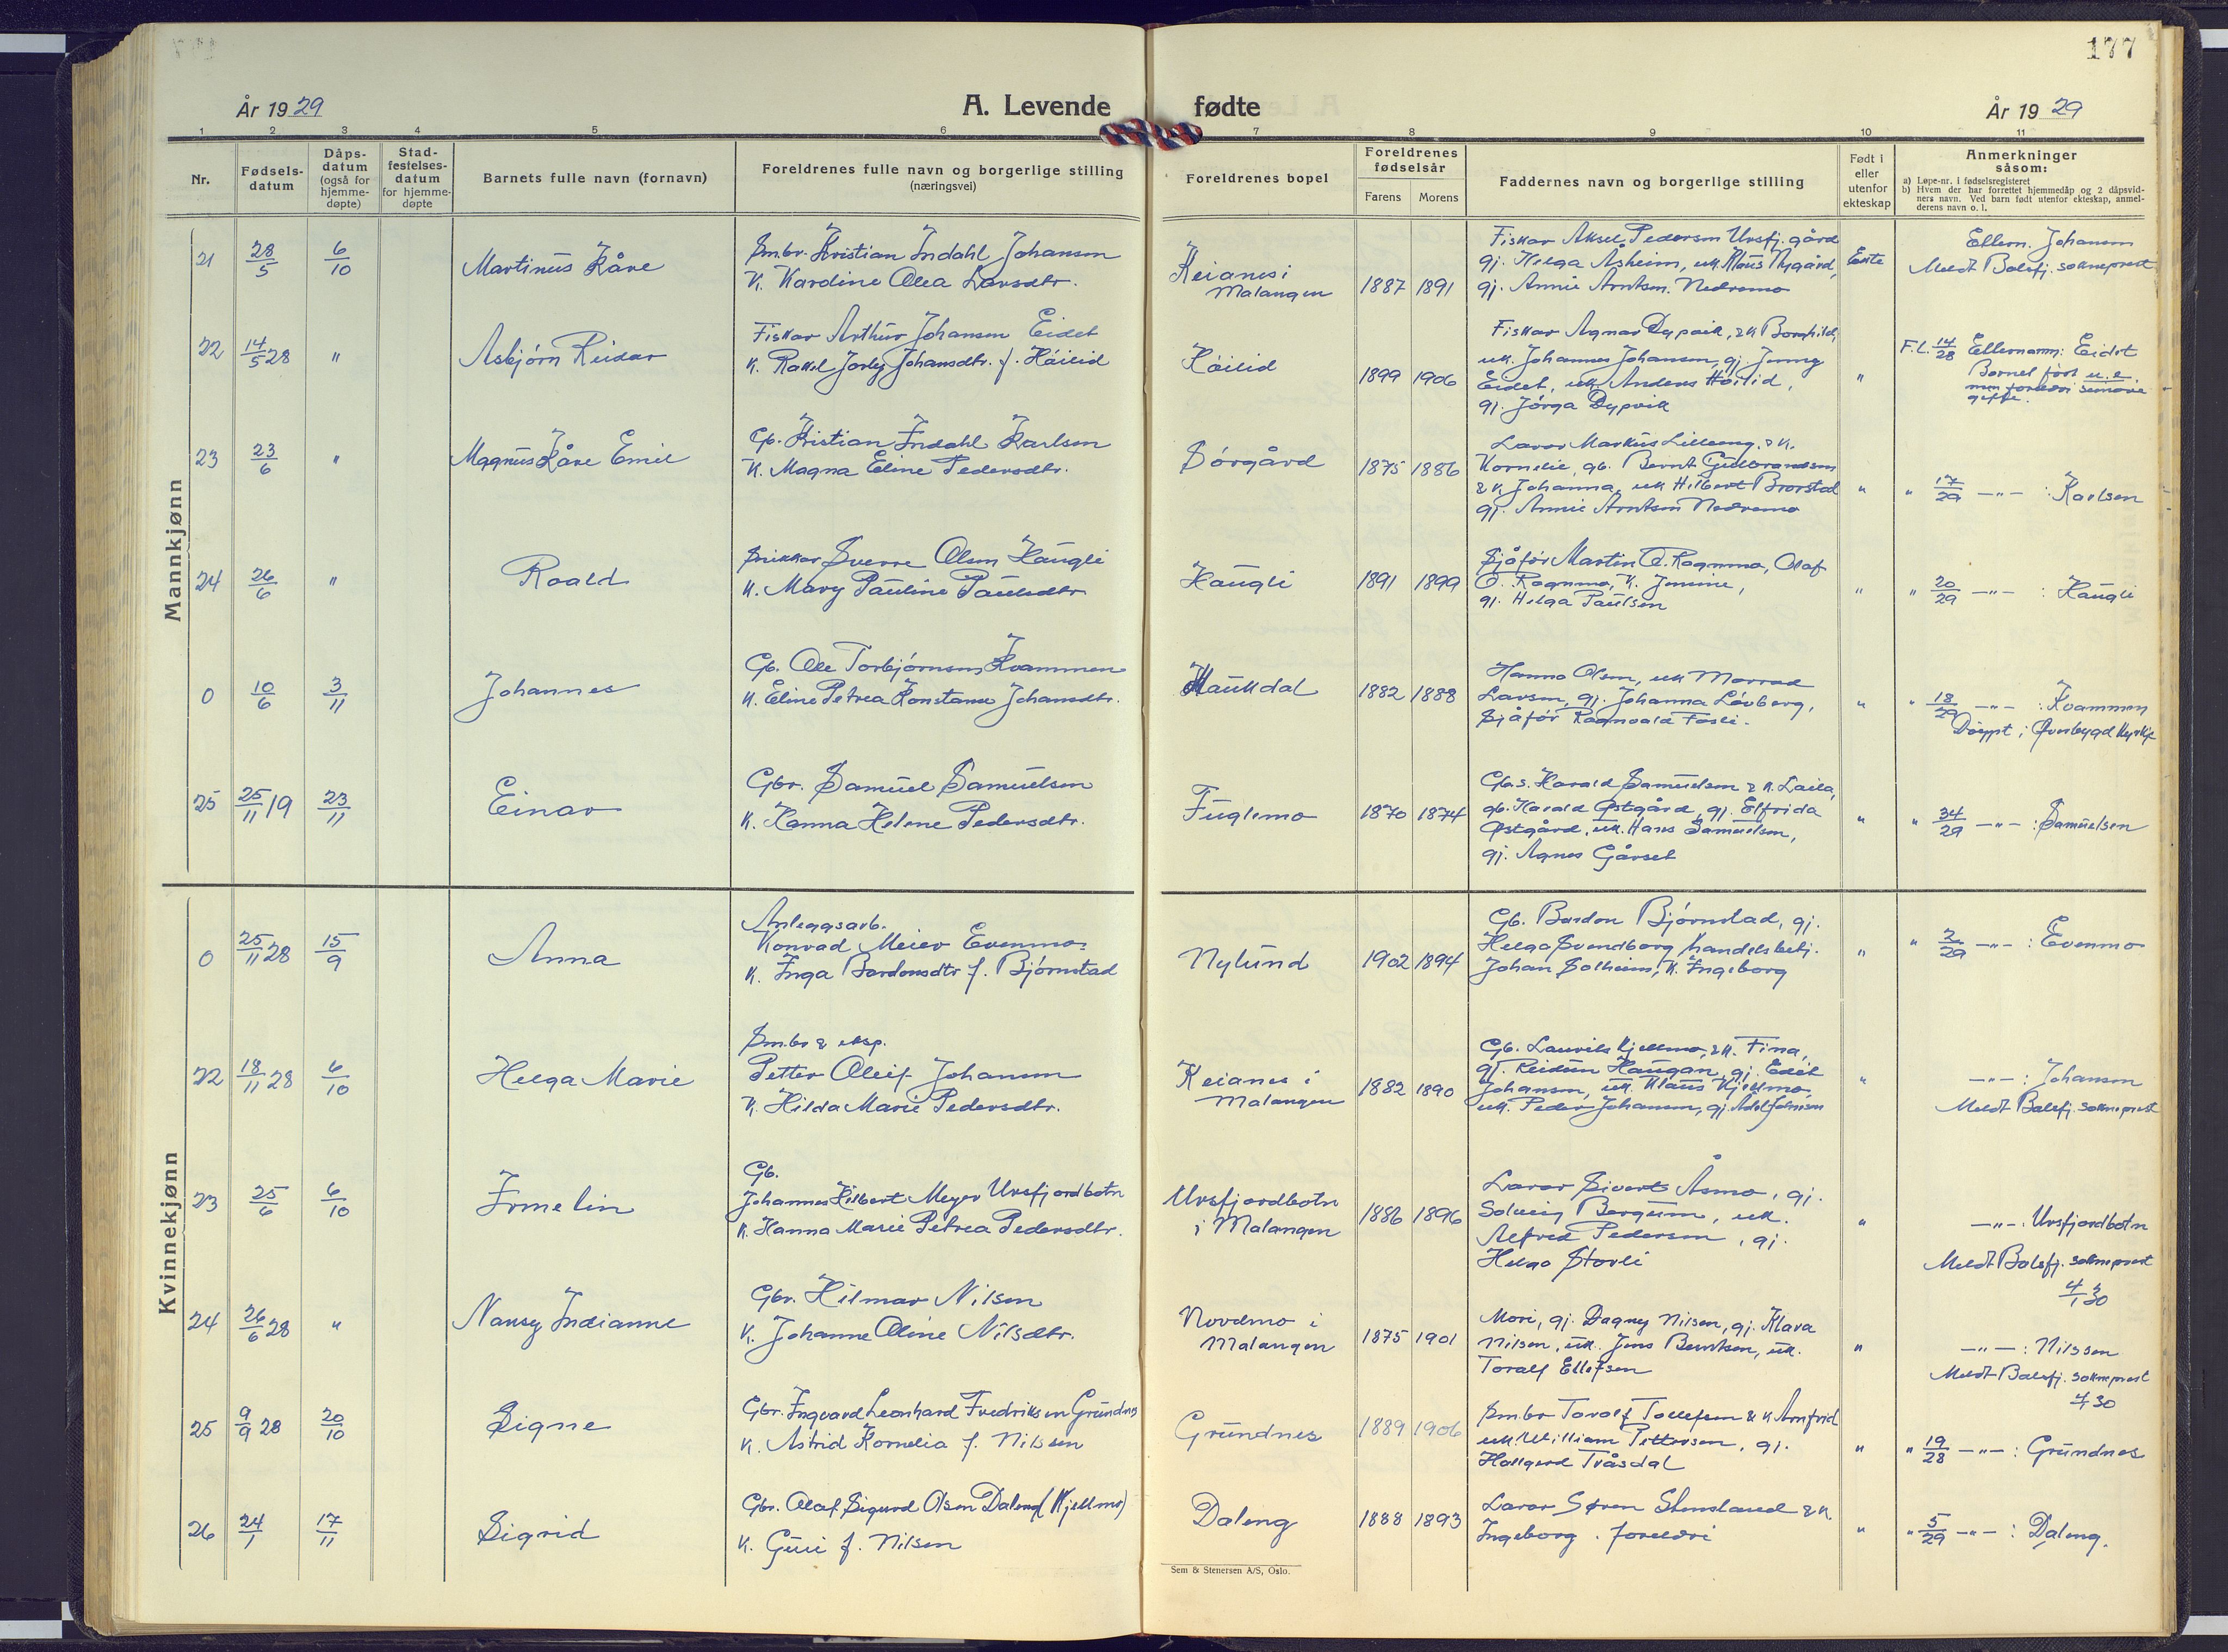 177
År 1929
A. Levende fødte
År 1929
1 2 3 4 5 6 7 8 9 10 11
Nr.
Fødsels-
datum
Dåps-
datum
(også for
hjemme-
døpte)
Stad-
festelses-
datum
for hjemme-
døpte
Barnets fulle navn (fornavn)
Foreldrenes fulle navn og borgerlige stilling
(næringsvei)
Foreldrenes bopel
Foreldrenes
fødselsår
Farens Morens
Faddernes navn og borgerlige stilling
Født i
eller
utenfor
ekteskap
Anmerkninger
såsom:
a) Løpe-nr. i fødselsregisteret
b) Hvem der har forrettet hjemmedåp og 2 dåpsvid-
ners navn. Ved barn født utenfor ekteskap, anmel-
derens navn o. l.
Mannkjønn
21 28/5 6/10 Martinus Kåre
Smbr. Kristian Indahl Johansen
K. Kardine Olea Larsdtr.
Keianes i
Malangen
1887 1891
Fisker Aksel Pedersen Ursfj. gård
gj. Helga Åsheim, uk. Klaus Nygård,
gj. Annie Arntsen Nedremo
Ekte
Ellern. Johansen
Meldt Balsfj. sokneprest
22 14/5 28 " Asbjørn Reidar
Fisker Arthur Johansen Eidet
K. Rakel Jorley Johansdtr. f. Høilid
Høilid
1899 1906
Fisker Agnar Dypvik, & K. Bornhild,
uk. Johannes Johansen, gj. Jenny
Eidet, uk. Anders Høilid,
gj. Jørga Dypvik
"
F.l. 14/28 Ellernamn: Eidet
Barnet født u.e.
men foreldri seinare
gifte.
23 23/6 " Magnus Kåre Emil
Gb. Kristian Indahl Karlsen
K. Magna Eline Pedersdtr.
Sørgård
1875 1886
Lærar Markus Lilleeng & K.
Kornelie, gb. Bernt Gulbrandsen
& K. Johanna, uk. Hilbert Brorstad
gj. Annie Arntsen Nedremo
"
" 17/29 -"- : Karlsen
24 26/6 " Roald
Snikkar Sverre Olsen Haugli
K. Mary Pauline Paulsdtr
Haugli
1891 1899
Sjåfør Martin O. Rognmo, Olaf
O. Rognmo, K. Jensine,
gj. Helga Paulsen
"
" 20/29 -"- : Haugli
0 10/6 3/11 Johannes
Gb. Ole Torbjørnsen Kvammen
K. Eline Petrea Konstanse Johansdtr.
Haukdal
1882 1888
Hanna Olsen, uk Morrad
Larsen, gj. Johanna Løvberg,
Sjåfør Ragnvald Fosli.
"
" 18/29 -"- : Kvammen
Døypt i Øverbygd kyrkje
25 25/11 19 23/11 Einar
Gbr. Samuel Samuelsen
K. Hanna Helene Pedersdtr.
Fuglemo
1870 1874
Gbs. Harald Samuelsen & K. Laila,
gb. Harald Østgård, gj. Elfrida
Østgård, uk. Hans Samuelsen,
gj. Agnes Gårset
"
" 34/29 -"- : Samuelsen
Kvinnekjønn
0 25/11 28 15/9 Anna
Anleggsarb.
Konrad Meier Evenmo
K. Inga Bardonsdtr f. Bjørnstad
Nylund
1902 1894
Gb. Bardon Bjørnstad, gj.
Helga Svendborg, handelsbetj.
Johan Solheim, K. Ingeborg
"
" 2/29 -"- : Evenmo
22 18/11 28 6/10 Helga Marie
Smbr & eksp.
Petter Oleif Johansen
K. Hilda Marie Pedersdtr.
Keianes i
Malangen
1882 1890
Gb. Laurits Kjellmo, & K. Fina,
gj. Reidun Haugan, gj. Edit
Johansen, uk. Klaus Kjellmo,
uk. Peder Johansen, gj. Adel Johnsen
"
-"- : Johansen
Meldt Balsfj. sokneprest
23 25/6 6/10 Irmelin
Gb.
Johannes Hilbert Meyer Ursfjordbotn
K. Hanna Marie Petrea Pedersdtr.
Ursfjordbotn
i Malangen
1886 1896
Lærar Sivert Åsmo, gj.
Solveig Bergum, uk.
Alfred Pedersen, gj.
Helga Storli
"
-"- : Ursfjordbotn
Meldt Balsfj. sokneprest
4/1 30
24 26/6 28 " Nansy Indianne
Gbr. Hilmar Nilsen
K. Johanne Oline Nilsdtr.
Nordmo i
Malangen
1875 1901
Mori, gj. Dagny Nilsen, gj. Klara
Nilsen, uk. Jens Berntsen, uk.
Toralf Ellefsen
"
-"- : Nilssen
Meldt Balsfj. sokneprest
4/1 30
25 9/9 28 20/10 Signe
Gbr. Ingvard Leonhard Fredriksen Grundnes
K. Astrid Kornelia f. Nilssen
Grundnes
1889 1906
Smbr Toralf Tollefsen & K Arnfrid
uk. William Pettersen, gj.
Hallgerd Tråsdal
"
" 19/28 -"- : Grundnes
26 24/1 17/11 Sigrid
Gbr. Olaf Sigurd Olsen Daleng (Kjellmo)
K. Guri f. Nilsen
Daleng
1888 1893
Lærar Søren Stensland & K.
Ingeborg. foreldri
"
" 5/29 -"- : Daleng.
Sem & Stenersen A/S, Oslo.